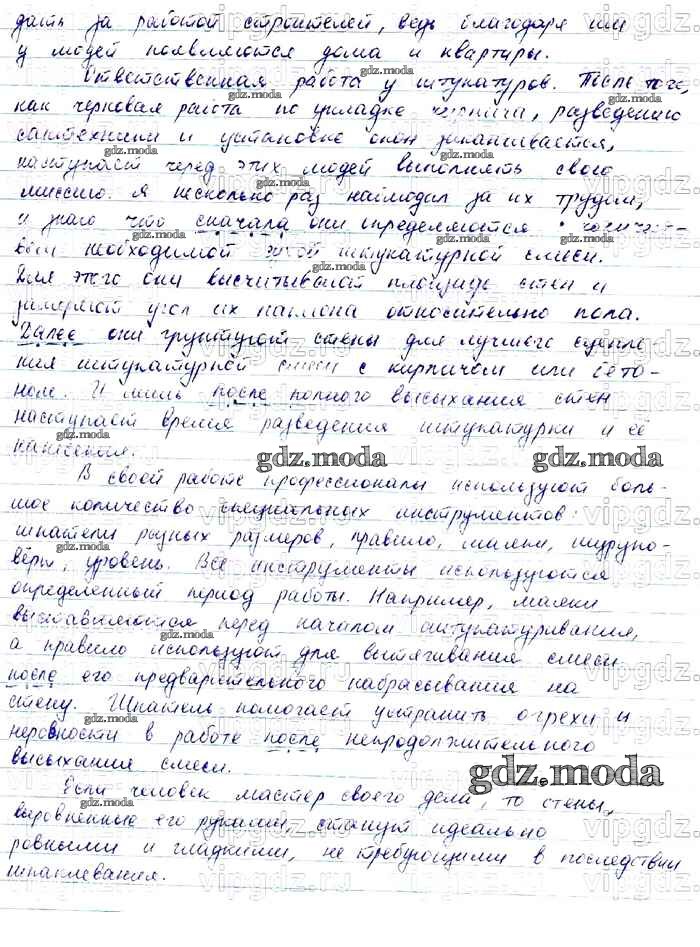 дать за работой строителей, ведь благодаря им
у людей появляются дома и квартиры.
Ответственная работа у штукатуров. После того,
как черновая работа по укладке кирпича, разведению
сантехники и установке окон заканчивается,
наступает черед этих людей выполнять свою
миссию. Я несколько раз наблюдал за их трудом,
и знаю что сначала они определяются с количест-
вом необходимой сухой штукатурной смеси.
Для этого они высчитывают площадь стен и
замеряют угол их наклона относительно пола.
Далее они грунтуют стены для лучшего сцепле-
ния штукатурной смеси с кирпичом или бето-
ном. И лишь после полного высыхания стен
наступает время разведения штукатурки и её
нанесения.
В своей работе профессионалы используют боль-
шое количество специальных инструментов:
шпатели разных размеров, правило, маяки, шурупо-
вёрт, уровень. Все инструменты используются
определенный период работы. Например, маяки
выставляются перед началом оштукатуривания,
а правило используют для вытягивания смеси
после его предварительного набрасывания на
стену. Шпатель помогает устранить огрехи и
неровности в работе после непродолжительного
высыхания смеси.
Если человек мастер своего дела, то стены,
выровненные его руками, станут идеально
ровными и гладкими, не требующими в последствии
шпаклевания.
gdz.moda
vipgdz.ru